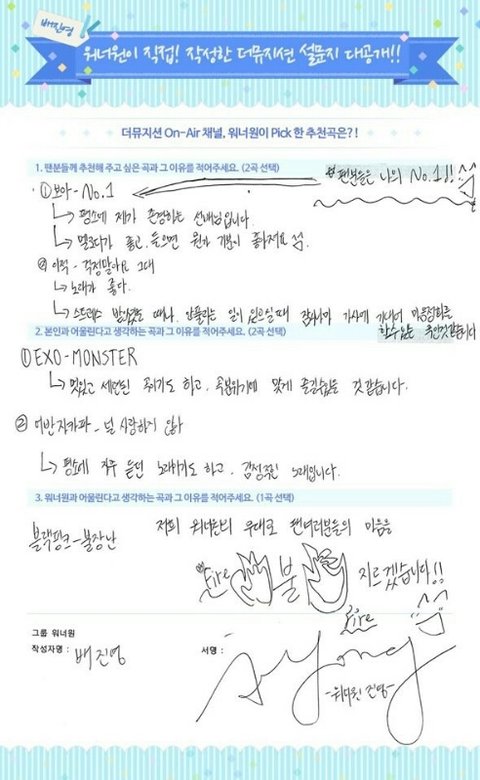 배진영
워너원이 직접! 작성한 더뮤지션 설문지 대공개!!
더뮤지션 On-Air 채널, 워너원이 Pick 한 추천곡은?!
1. 팬분들께 추천해 주고 싶은 곡과 그 이유를 적어주세요. (2곡 선택)
① 보아 - No.1
"팬분들은 나의 No.1!!
↳ 평소에 제가 존경하는 선배님입니다.
↳ 멜로디가 좋고, 듣으면 뭔가 기분이 좋아져요
② 이적 - 걱정말아요 그대
↳ 노래가 좋다.
↳ 스트레스 받았을 때나, 안풀리는 일이 있으실때 잠시나마 가사에 기대서 마음정화를
할수있는 곡인것같습니다
2. 본인과 어울린다고 생각하는 곡과 그 이유를 적어주세요. (2곡 선택)
① EXO - MONSTER
↳ 멋있고 세련된 곡이기도 하고, 곡분위기에 맞게 즐길수있는 것 같습니다.
② 어반자카파 - 널 사랑하지 않아
↳ 평소에 자주 듣던 노래이기도 하고, 감성적인 노래입니다.
3. 워너원과 어울린다고 생각하는 곡과 그 이유를 적어주세요. (1곡 선택)
블랙핑크 - 불장난
저희 워너원의 무대로 팬여러분들의 마음을
Fire 불 지르겠습니다!!
Fire
그룹 워너원
작성자명 : 배진영
서명 :
-워너원 진영-